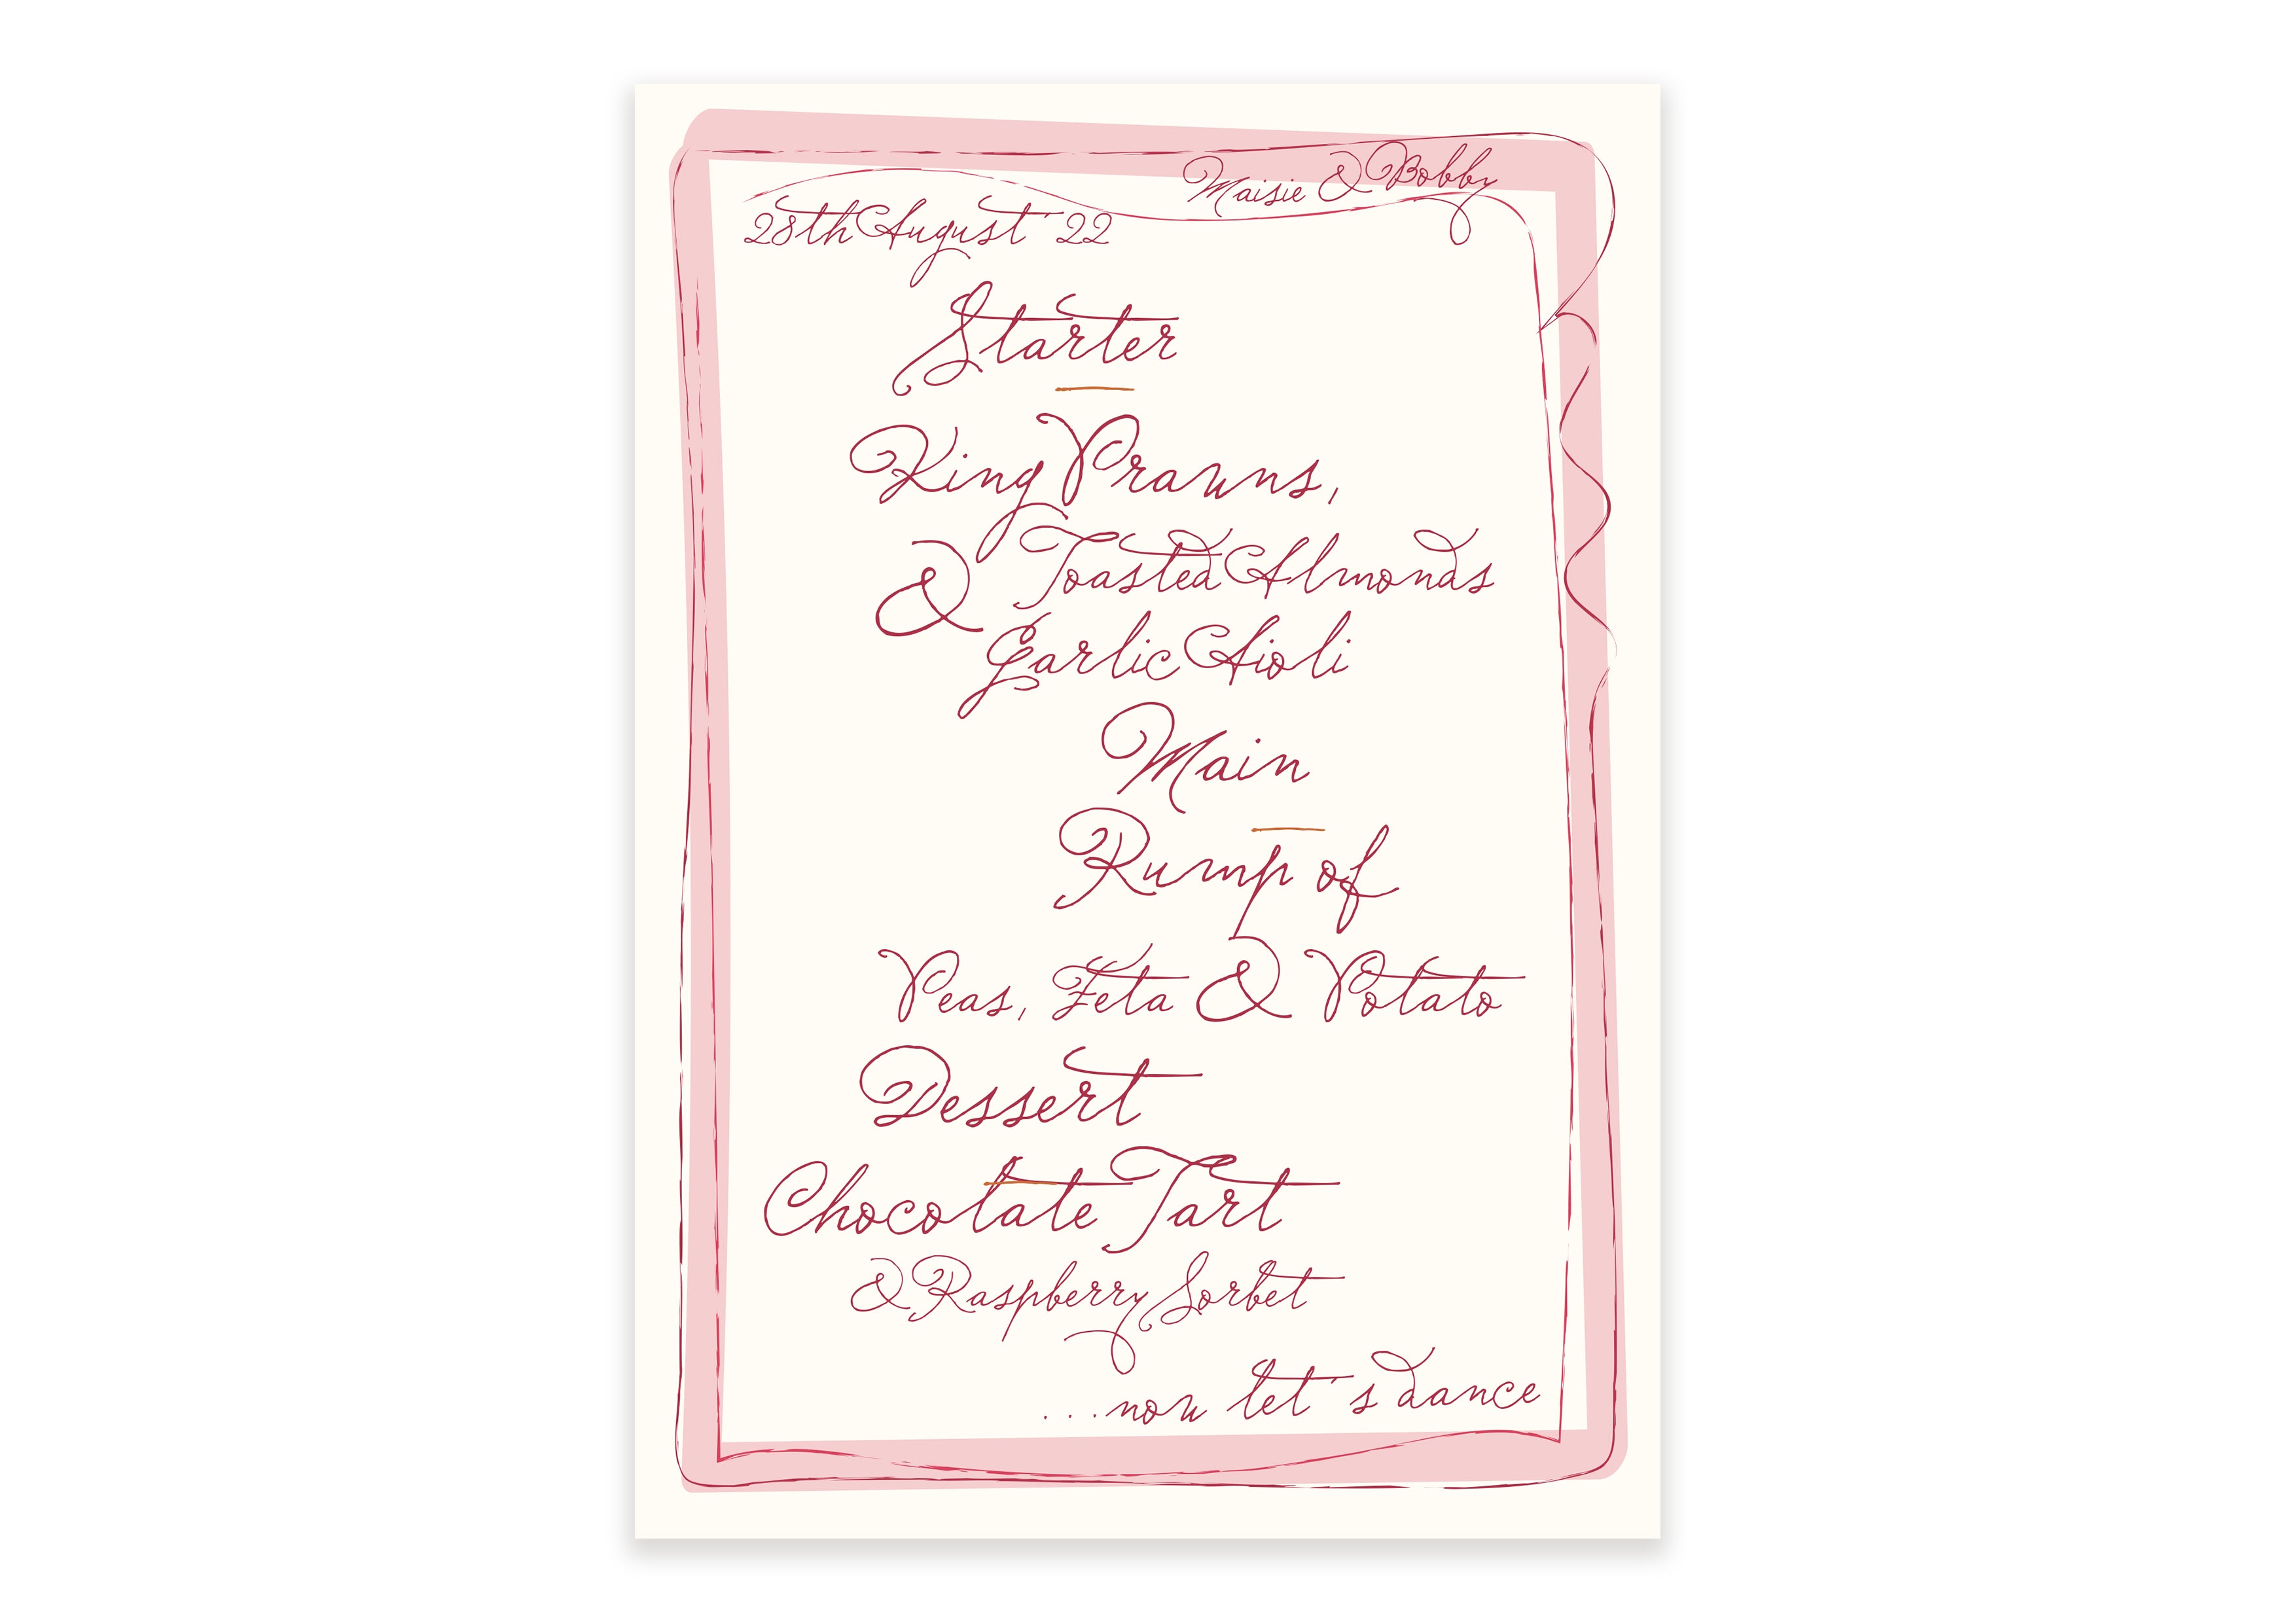 Maisie & Bobby
28th August '22
Starter
King Prawns,
& Toasted Almonds
Garlic Aioli
Main
Rump of
Peas, Feta & Potato
Dessert
Chocolate Tart
& Raspberry Sorbet
...now let's dance